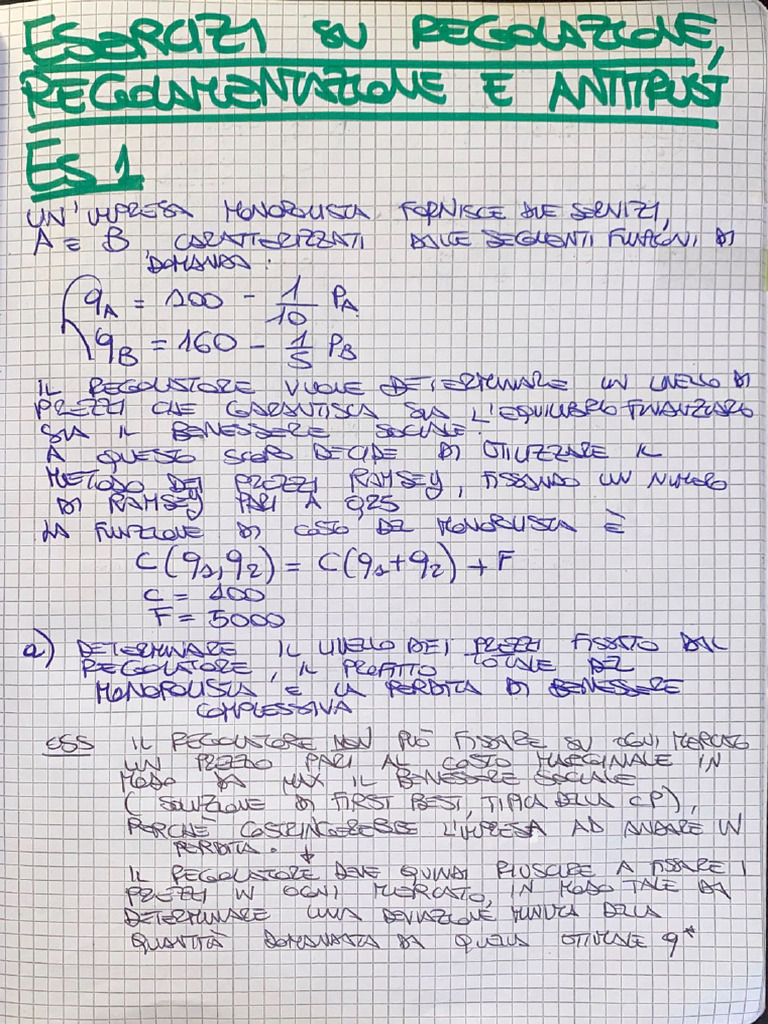 ESERCIZI SU REGOLAZIONE,
REGOLAMENTAZIONE E ANTITRUST
ES 1
UN'IMPRESA MONOPOLISTA FORNISCE DUE SERVIZI,
A E B, CARATTERIZZATI DALLE SEGUENTI FUNZIONI DI
DOMANDA:
qA = 100 - 1/10 PA
qB = 160 - 1/5 PB
IL REGOLATORE VUOLE DETERMINARE UN LIVELLO DI
PREZZI CHE GARANTISCA SIA L'EQUILIBRIO FINANZIARIO
SIA IL BENESSERE SOCIALE.
A QUESTO SCOPO DECIDE DI UTILIZZARE IL
METODO DEI PREZZI RAMSEY, FISSANDO UN NUMERO
DI RAMSEY PARI A 0,25
LA FUNZIONE DI COSTO DEL MONOPOLISTA È
C(q1,q2) = C(q1+q2) + F
C = 400
F = 5000
a) DETERMINARE IL LIVELLO DEI PREZZI FISSATO DAL
REGOLATORE, IL PROFITTO TOTALE DEL
MONOPOLISTA E LA PERDITA DI BENESSERE
COMPLESSIVA
OSS IL REGOLATORE NON PUÒ FISSARE SU OGNI MERCATO
UN PREZZO PARI AL COSTO MARGINALE IN
MODO DA MAX IL BENESSERE SOCIALE
(SOLUZIONE DI FIRST BEST, TIPICA DELLA CP),
PERCHÈ COSTRINGEREBBE L'IMPRESA AD ANDARE IN
PERDITA. ↓
IL REGOLATORE DEVE QUINDI RIUSCIRE A FISSARE I
PREZZI IN OGNI MERCATO, IN MODO TALE DA
DETERMINARE UNA DEVIAZIONE MINIMA DELLA
QUANTITÀ DOMANDATA DA QUELLA OTTIMALE q*